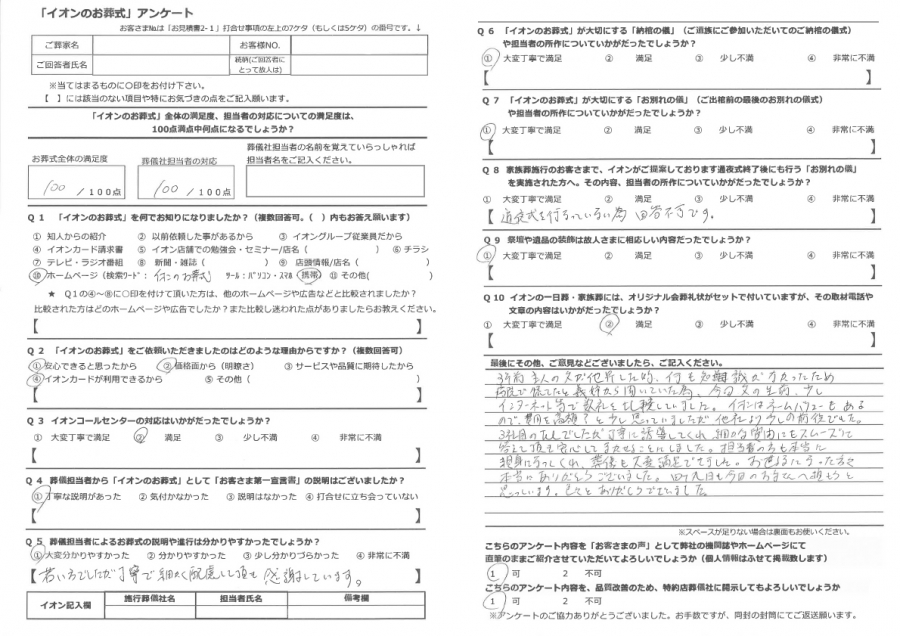 「イオンのお葬式」アンケート
お客さま№は「お見積書2-1」打合せ事項の左上の7ケタ（もしくは5ケタ）の番号です。↓
ご葬家名
お客様NO.
ご回答者氏名
続柄(ご回答者にとって故人は)
※当てはまるものに○印をお付け下さい。
【 】には該当のない項目や特にお気づきの点をご記入願います。
「イオンのお葬式」全体の満足度、担当者の対応についての満足度は、
100点満点中何点になるでしょうか？
お葬式全体の満足度
葬儀社担当者の対応
葬儀社担当者の名前を覚えていらっしゃれば
担当者名をご記入ください。
100 / 100点
100 / 100点
Q 1 「イオンのお葬式」を何でお知りになりましたか？（複数回答可。（ ）内もお答え願います）
① 知人からの紹介 ② 以前依頼した事があるから ③ イオングループ従業員だから
④ イオンカード請求書 ⑤ イオン店舗での勉強会・セミナー/店名（ ） ⑥ チラシ
⑦ テレビ・ラジオ番組 ⑧ 新聞・雑誌（ ） ⑨ 店頭情報/店名（ ）
⑩ ホームページ（検索ワード： イオンのお葬式 ツール：パソコン・スマホ 携帯） ⑪ その他( )
★ Q1の④～⑧に○印を付けて頂いた方は、他のホームページや広告などと比較されましたか？
比較された方はどのホームページや広告でしたか？また比較し迷われた点がありましたらお教えください。
【 】
Q 2 「イオンのお葬式」をご依頼いただきましたのはどのような理由からですか？（複数回答可）
①安心できると思ったから ②価格面から（明瞭さ） ③ サービスや品質に期待したから
④イオンカードが利用できるから ⑤ その他（ ）
【 】
Q 3 イオンコールセンターの対応はいかがだったでしょうか？
① 大変丁寧で満足 ② 満足 ③ 少し不満 ④ 非常に不満
【 】
Q 4 葬儀担当者から「イオンのお葬式」として「お客さま第一宣言書」の説明はございましたか？
①丁寧な説明があった ② 気付かなかった ③ 説明はなかった ④ 打合せに立ち会っていない
【 】
Q 5 葬儀担当者によるお葬式の説明や進行は分かりやすかったでしょうか？
①大変分かりやすかった ② 分かりやすかった ③ 少し分かりづらかった ④ 非常に不満
【若い方でしたが丁寧で細かく配慮して頂き感謝しています。】
イオン記入欄
施行葬儀社名
担当者氏名
備考欄
Q 6 「イオンのお葬式」が大切にする「納棺の儀」（ご遺族にご参加いただいてのご納棺の儀式）
や担当者の所作についていかがだったでしょうか？
① 大変丁寧で満足 ② 満足 ③ 少し不満 ④ 非常に不満
【 】
Q 7 「イオンのお葬式」が大切にする「お別れの儀」（ご出棺前の最後のお別れの儀式）
や担当者の所作についていかがだったでしょうか？
① 大変丁寧で満足 ② 満足 ③ 少し不満 ④ 非常に不満
【 】
Q 8 家族葬施行のお客さまで、イオンがご提案しております通夜式終了後にも行う「お別れの儀」
を実施された方へ。その内容、担当者の所作についていかがだったでしょうか？
① 大変丁寧で満足 ② 満足 ③ 少し不満 ④ 非常に不満
【通夜式を行なっていない為 回答不可です。】
Q 9 祭壇や遺品の装飾は故人さまに相応しい内容だったでしょうか？
① 大変丁寧で満足 ② 満足 ③ 少し不満 ④ 非常に不満
【 】
Q 10 イオンの一日葬・家族葬には、オリジナル会葬礼状がセットで付いていますが、その取材電話や
文章の内容はいかがだったでしょうか？
① 大変丁寧で満足 ② 満足 ③ 少し不満 ④ 非常に不満
最後にその他、ご意見などございましたら、ご記入ください。
3年前 主人の父が他界した時、何も知識がなかったため
病院で慌てたと義姉から聞いていた為、今回父の生前、少し
インターネット等で数社を比較していました。イオンはネームバリューもある
ので、費用も高額？と少し思っていましたが他社より少しの前後でした。
3社目のTELでしたが丁寧に誘導してくれ、細かな質問にもスムーズに
答えて頂き安心してまかせることにしました。担当者の方も本当に
親身になってくれ、葬儀も大変満足できました。お世話になった方々
本当にありがとうございました。四十九日も今回のお寺さんへ頼もうと
思っています。色々とありがとうございました。
※スペースが足りない場合は裏面もお使いください。
こちらのアンケート内容を「お客さまの声」として弊社の機関誌やホームページにて
直筆のままご紹介させていただいてよろしいでしょうか（個人情報はふせて掲載致します）
1 可 2 不可
こちらのアンケート内容を、品質改善のため、特約店葬儀社に開示してもよろしいでしょうか
1 可 2 不可
※アンケートのご協力ありがとうございました。お手数ですが、同封の封筒にてご返送願います。